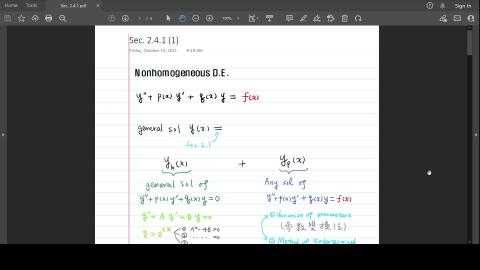 Home Tools Sec. 2.4.1.pdf Sign In
Sec. 2.4.1 (1)
Friday, October 15, 2021
Nonhomogeneous D.E.
y'' + p(x) y' + q(x) y = f(x)
general sol y(x) =
Sec 2.1
y_h(x) + y_p(x)
general sol of Any sol of
y''+p(x)y'+q(x)y=0 y''+p(x)y'+q(x)y=f(x)
y''+Ay'+By=0 ① Variation of parameters
(參數變換法)
y = e^{λx} ① A²-4B>0
② Method of Undetermined